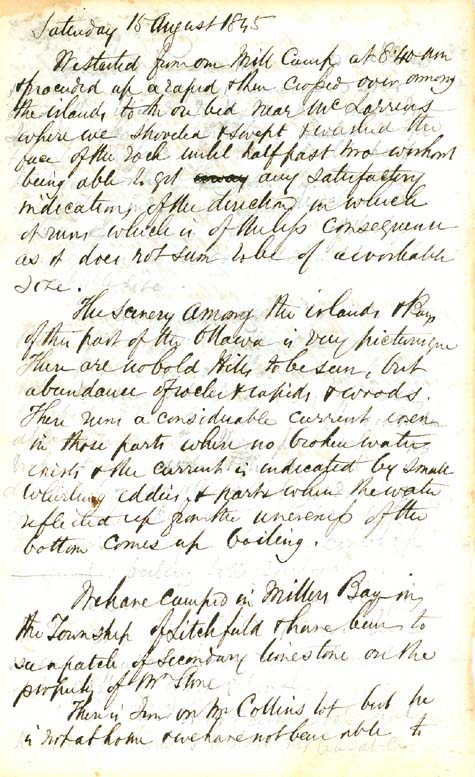 Saturday 16 August 1845
We started from our Mill Camp at 8:40 am
& proceeded up a rapid & then crossed over among
the islands to the ore bed near McLarrens
where we shoveled & swept & washed the
face of the rock until half past two without
being able to get away any satisfactory
indication of the direction in which
it runs which is of the less consequence
as it does not seem to be of a workable
size.
The scenery among the islands & Bays
of this part of the Ottawa is very picturesque
There are no bold Hills to be seen, but
abundance of rocks & rapids & woods.
There runs a considerable current even
in those parts where no broken water
exists & the current is indicated by small
whirling eddies, & parts where the water
reflected up from the uneveness of the
bottom comes up boiling.
We have camped in Millers Bay in
the Township of Litchfield & have been to
see a patch of secondary limestone on the
property of Mr Stone
There is Iron on Mr Collins lot but he
is not at home & we have not been able to